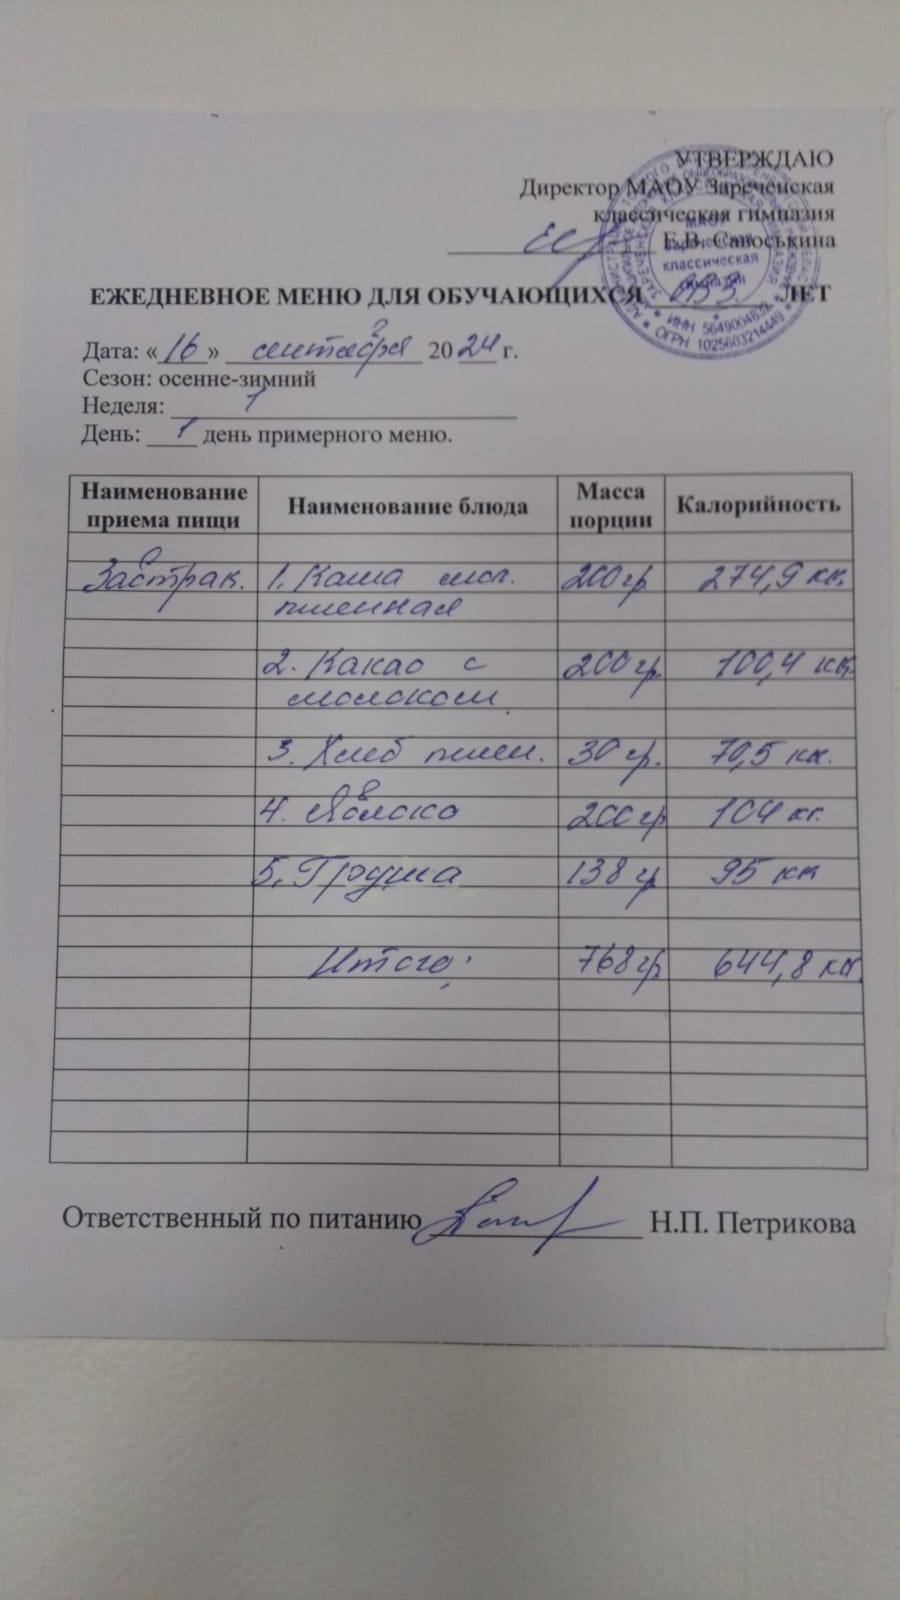 УТВЕРЖДАЮ
Директор МАОУ Зареченская
классическая гимназия
Е.В. Савоськина
МАОУ
Зареченская
классическая
гимназия
ИНН 5649004832 * ОГРН 1025603214449
ЕЖЕДНЕВНОЕ МЕНЮ ДЛЯ ОБУЧАЮЩИХСЯ ОВЗ ЛЕТ
Дата: «16» сентября 2024 г.
Сезон: осенне-зимний
Неделя: 1
День: 1 день примерного меню.
Наименование приема пищи Наименование блюда Масса порции Калорийность
Завтрак. 1. Каша мол. 200 гр 274,9 кк.
пшенная
2. Какао с 200 гр. 100,4 кк.
молоком
3. Хлеб пшен. 30 гр. 70,5 кк.
4. Яблоко 200 гр 104 кк.
5. Груша 138 гр 95 кк
Итого: 768 гр 644,8 кк.
Ответственный по питанию Н.П. Петрикова